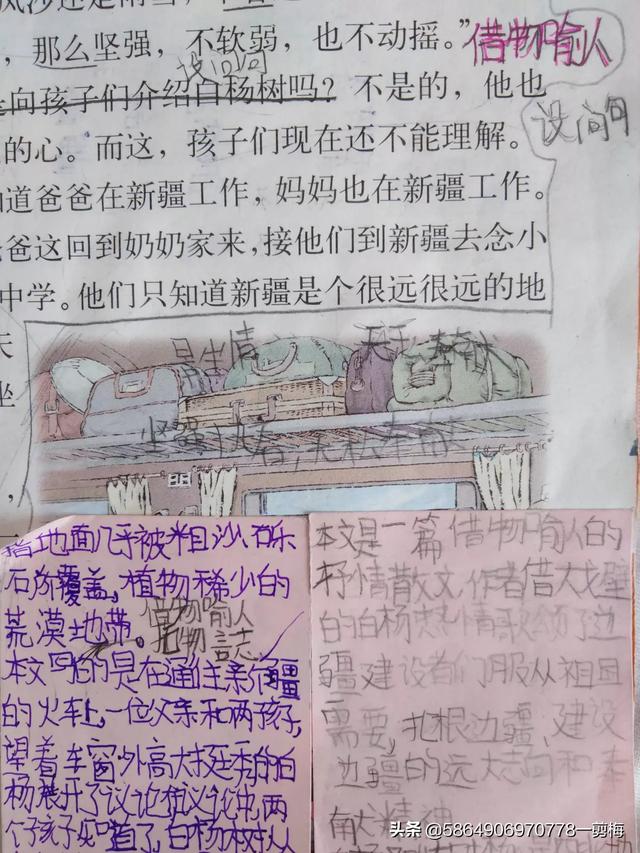 ，那么坚强，不软弱，也不动摇。”
借物喻人
设问句
向孩子们介绍白杨树吗？不是的，他也
设问句
的心。而这，孩子们现在还不能理解。
道爸爸在新疆工作，妈妈也在新疆工作。
爸这回到奶奶家来，接他们到新疆去念小
中学。他们只知道新疆是个很远很远的地
天
坐
，
指地面几乎被粗沙砾
石所覆盖，植物稀少的
荒漠地带。
借物喻人
托物言志
本文写的是在通往新疆
的火车上，一位父亲和两孩子，
望着车窗外高大挺秀的白
杨展开了议论
两
个孩子知道了，白杨树从
本文是一篇借物喻人的
抒情散文，作者借大戈壁
的白杨热情歌颂了边
疆建设者们服从祖国
需要，扎根边疆、建设
边疆的远大志向和奉
献精神
头条 @5864906970778一剪梅